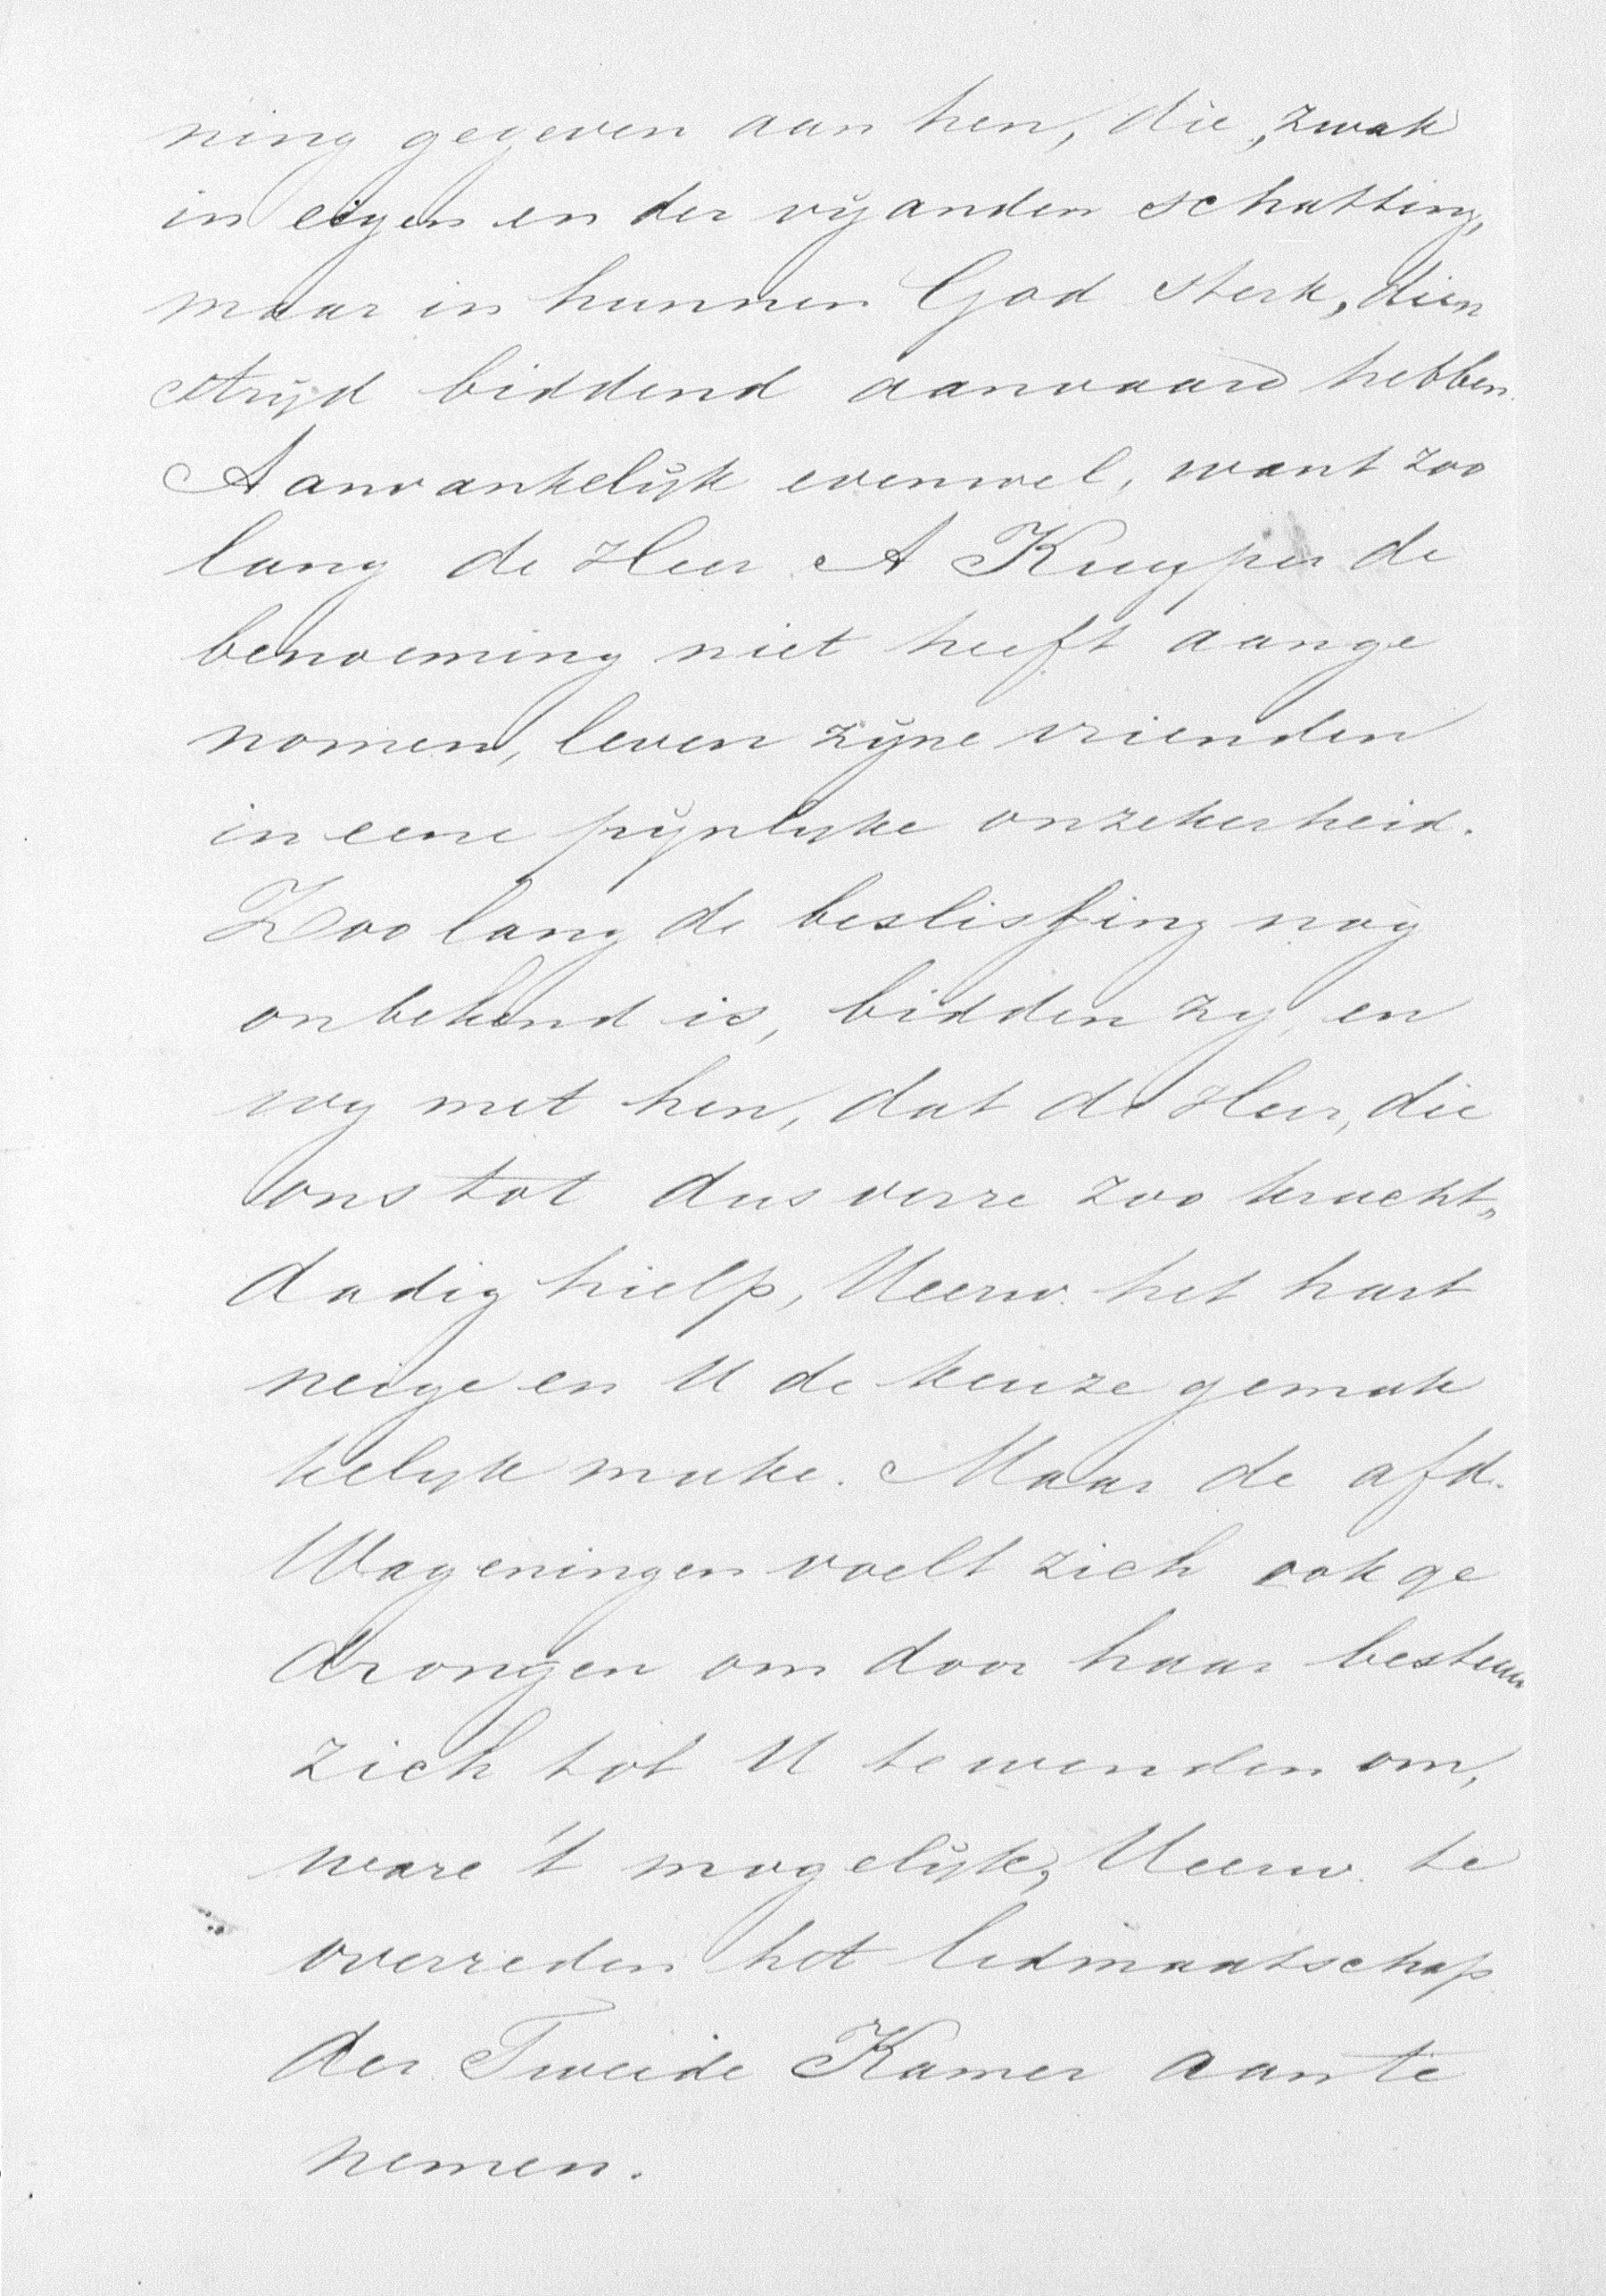 ning gegeven aan hen, die, zwak
in eigen en der vijanden schatting,
maar in hunnen God sterk, dien
strijd biddend aanvaard hebben.
Aanvankelijk evenwel, want zoo
lang de Heer A Kuyper de
benoeming niet heeft aange
nomen, leven zijne vrienden
in eene pijnlyke onzekerheid.
Zoo lang de beslissing nog
onbekend is, bidden zy en
wy met hen, dat de Heer, die
ons tot dus verre zoo kracht„
dadig hielp, Ueerw. het hart
neige en U de keuze gemak
kelyk make. Maar de afd.
Wageningen voelt zich ook ge
drongen om door haar bestuur
zich tot U te wenden om,
ware 't mogelijk, Ueerw. te
overreden het lidmaatschap
der Tweede Kamer aan te
nemen.